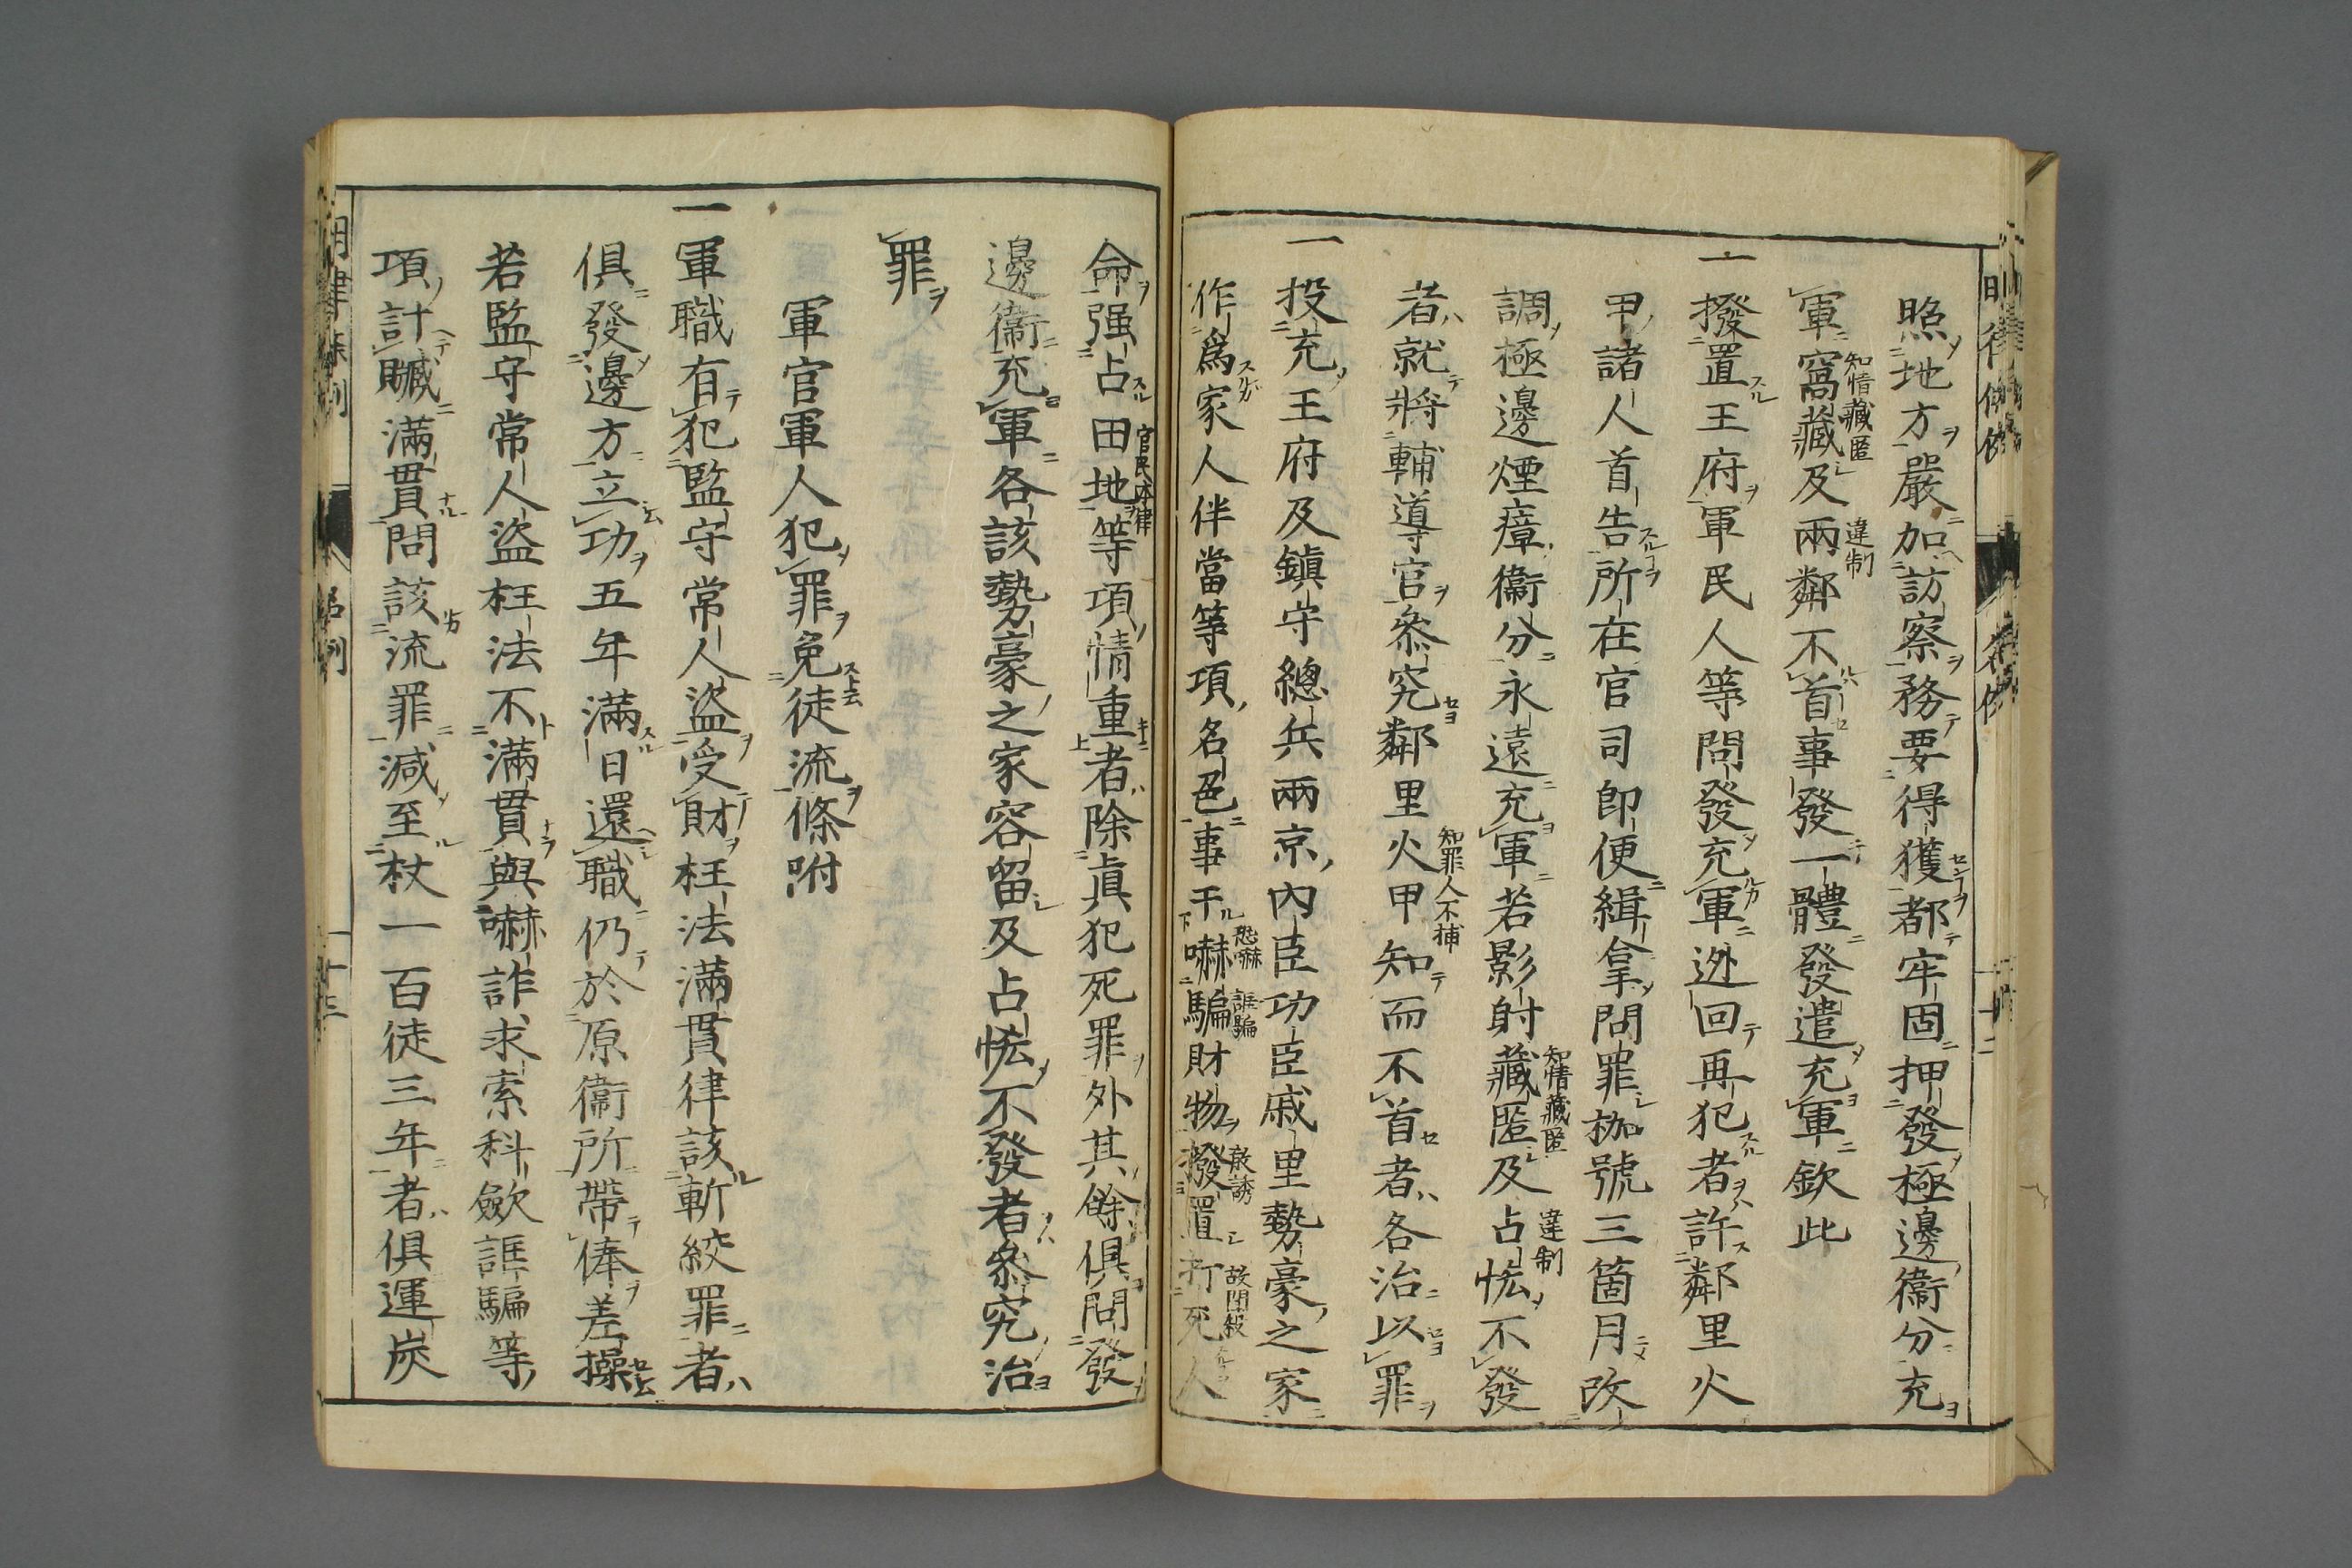 照地方嚴加訪察務要得獲都牢固押發極邊衞分充
軍窩藏及兩鄰不首事發一體發遣充軍欽此
知情藏匿
違制
一撥置王府軍民人等問發充軍迯回再犯者許鄰里火
甲諸人首告所在官司即便緝拿問罪枷號三箇月改
調極邊煙瘴衞分永遠充軍若影射藏匿及占恡不發
知情藏匿
違制
者就將輔導官叅究鄰里火甲知而不首者各治以罪
知罪人不捕
一投充王府及鎮守總兵兩京內臣功臣戚里勢豪之家
作爲家人伴當等項名色事干嚇騙財物撥置打死人
恐嚇
誆騙
故鬪殺
命强占田地等項情重者除眞犯死罪外其餘俱問發
官民本律
邊衞充軍各該勢豪之家容留及占恡不發者叅究治
罪
軍官軍人犯罪免徒流條附
一軍職有犯監守常人盜受財枉法滿貫律該斬絞罪者
俱發邊方立功五年滿日還職仍於原衞所帶俸差操
若監守常人盜枉法不滿貫與嚇詐求索科斂誆騙等
項計贓滿貫問該流罪減至杖一百徒三年者俱運炭